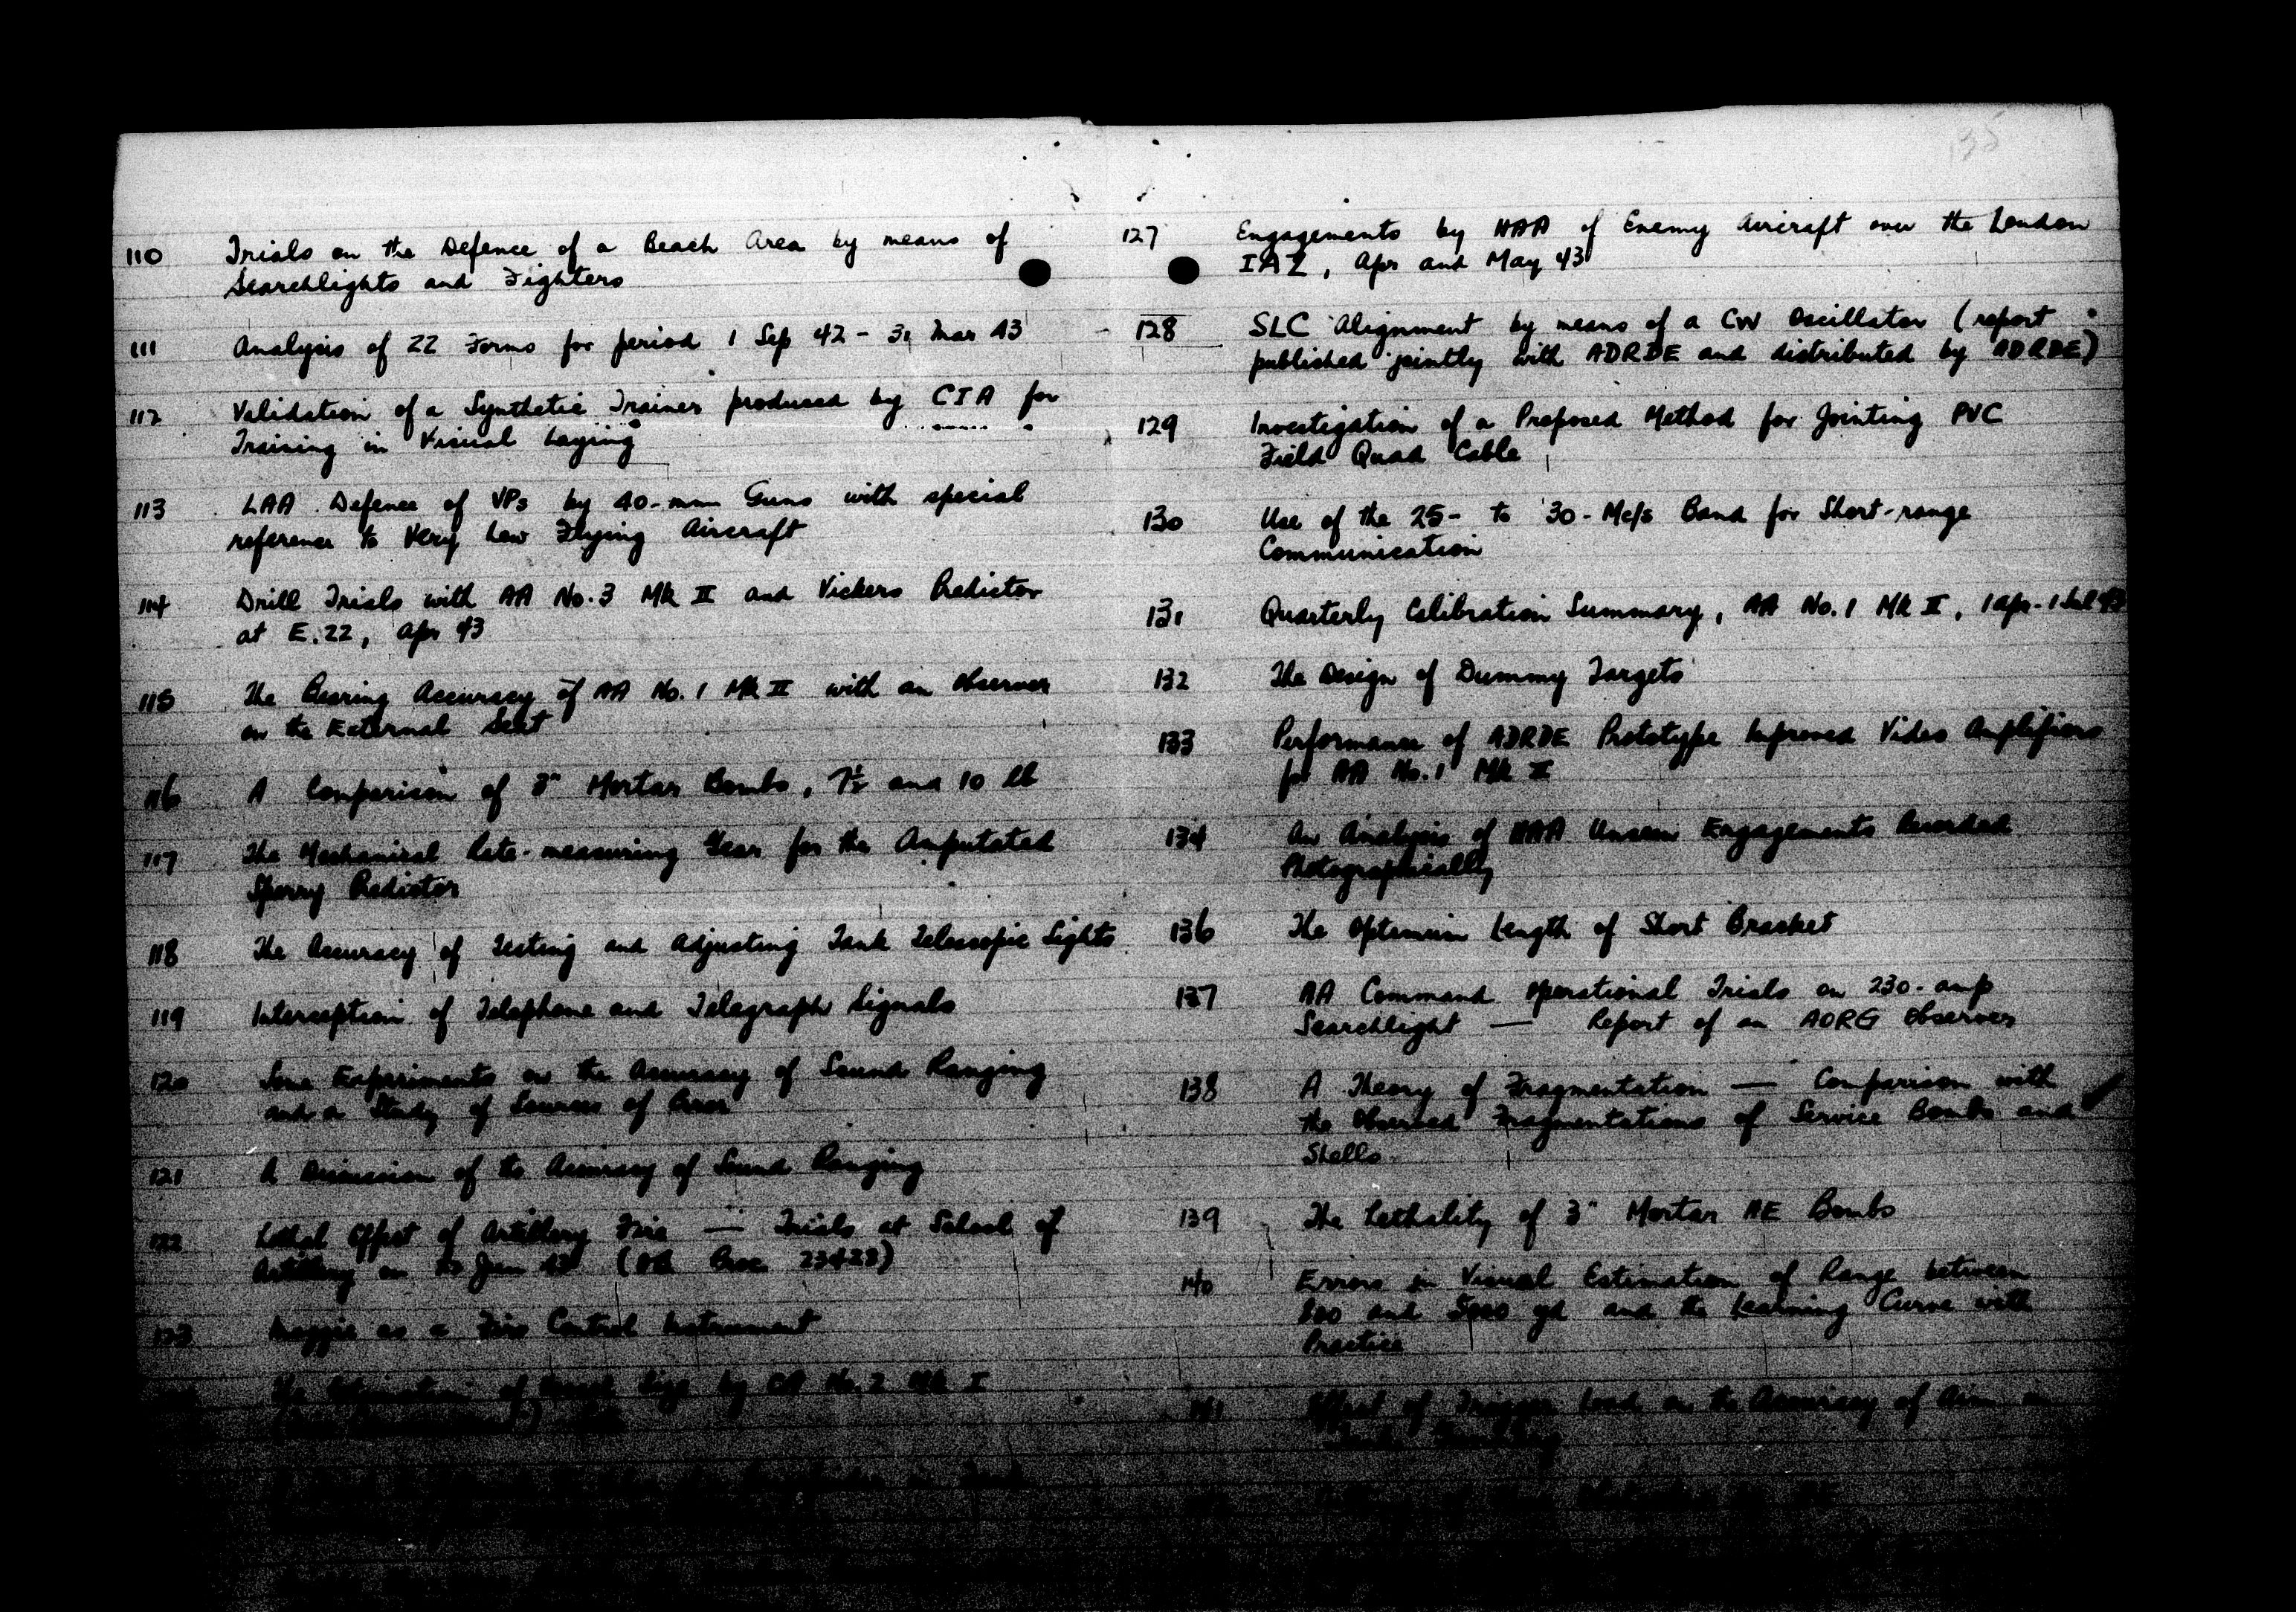 135
110 Trials on the Defence of a Beach Area by means of
Searchlights and Fighters
111 Analysis of ZZ Forms for period 1 Sep 42 - 31 Mar 43
112 Validation of a Synthetic Trainer produced by CIA for
Training in Visual Laying
113 LAA Defence of VPs by 40-mm Guns with special
reference to Very Low Flying Aircraft
114 Drill Trials with AA No. 3 Mk II and Vickers Predictor
at E.22, Apr 43
115 The Bearing Accuracy of AA No. 1 Mk II with an Observer
on the External Seat
116 A Comparison of 3" Mortar Bombs, 7½ and 10 lb
117 The Mechanical Rate-measuring Gear for the Amputated
Sperry Predictor
118 The Accuracy of Testing and Adjusting Tank Telescopic Sights
119 Interception of Telephone and Telegraph Signals
120 Some Experiments on the Accuracy of Sound Ranging
and a Study of Sources of Error
121 A Discussion of the Accuracy of Sound Ranging
122 Lethal Effect of Artillery Fire — Trials at School of
Artillery on Jun 43 (OB Proc 23428)
123 Maggie as a Fire Control Instrument
The Estimation of by CA No. 2 Mk I
127 Engagements by HAA of Enemy Aircraft over the London
IAZ, Apr and May 43
128 SLC Alignment by means of a CW Oscillator (report
published jointly with ADRDE and distributed by ADRDE)
129 Investigation of a Proposed Method for Jointing PVC
Field Quad Cable
130 Use of the 25- to 30-Mc/s Band for Short-range
Communication
131 Quarterly Calibration Summary, AA No. 1 Mk II, 1 Apr - 1 Jul 43
132 The Design of Dummy Targets
133 Performance of ADRDE Prototype Improved Video Amplifiers
for AA No. 1 Mk II
134 An Analysis of HAA Unseen Engagements Recorded
Photographically
136 The Optimum Length of Short Bracket
137 AA Command Operational Trials on 230-amp
Searchlight — Report of an AORG Observer
138 A Theory of Fragmentation — Comparison with
the Observed Fragmentations of Service Bombs and
Shells
139 The Lethality of 3" Mortar HE Bombs
140 Errors in Visual Estimation of Range between
800 and 5000 yd and the Learning Curve with
Practice
141 Effect of Trigger Load on the Accuracy of Aim in